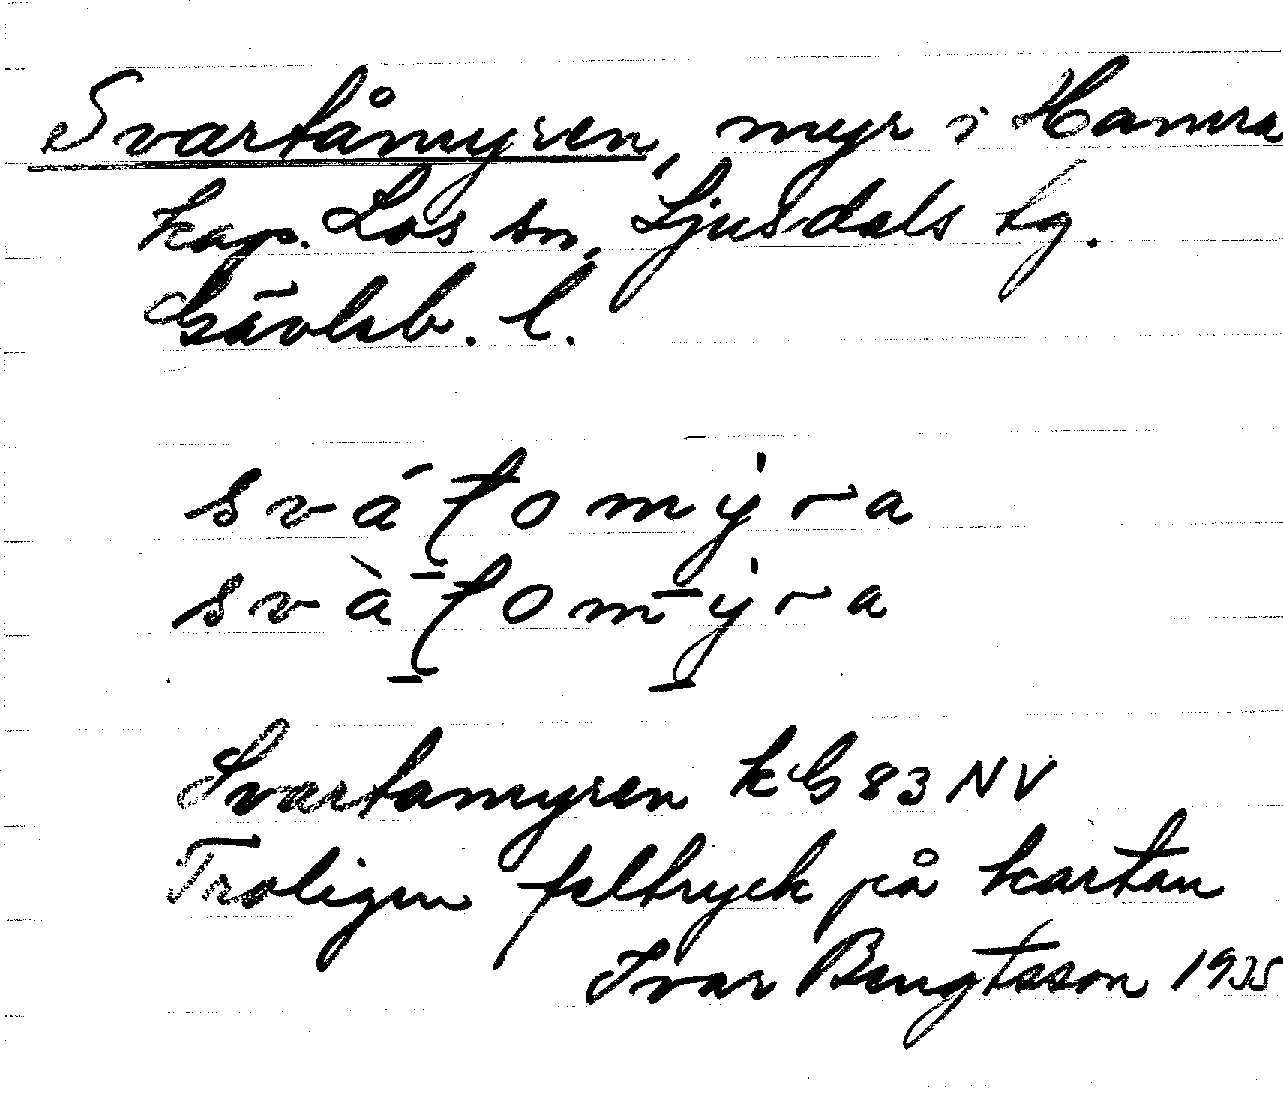 Svartåmyren, myr i Hamra
kap. Los sn, Ljusdals tg.
Gävleb. l.
svát̠omy̍ra
svàt̠omy̍ra
Svartamyren kG 83 NV
Troligen feltryck på kartan
Ivar Bengtsson 1935